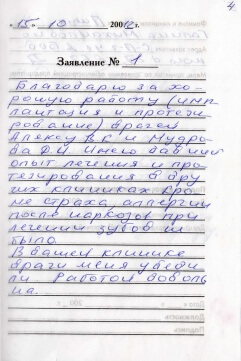 4
"15" 10 200 г.
Заявление № 1
Благодарю за хо-
рошую работу (имп
лантация и протези
рование) врачей
В.К и Мудро-
ва Ф.И Имею давний
опыт лечения и про-
тезирования в дру
гих клиниках кро
ме страха, аллергии
после наркоза при
лечении зубов не
было.
В вашей клинике
врачи меня убеди
ли работой доволь
на.